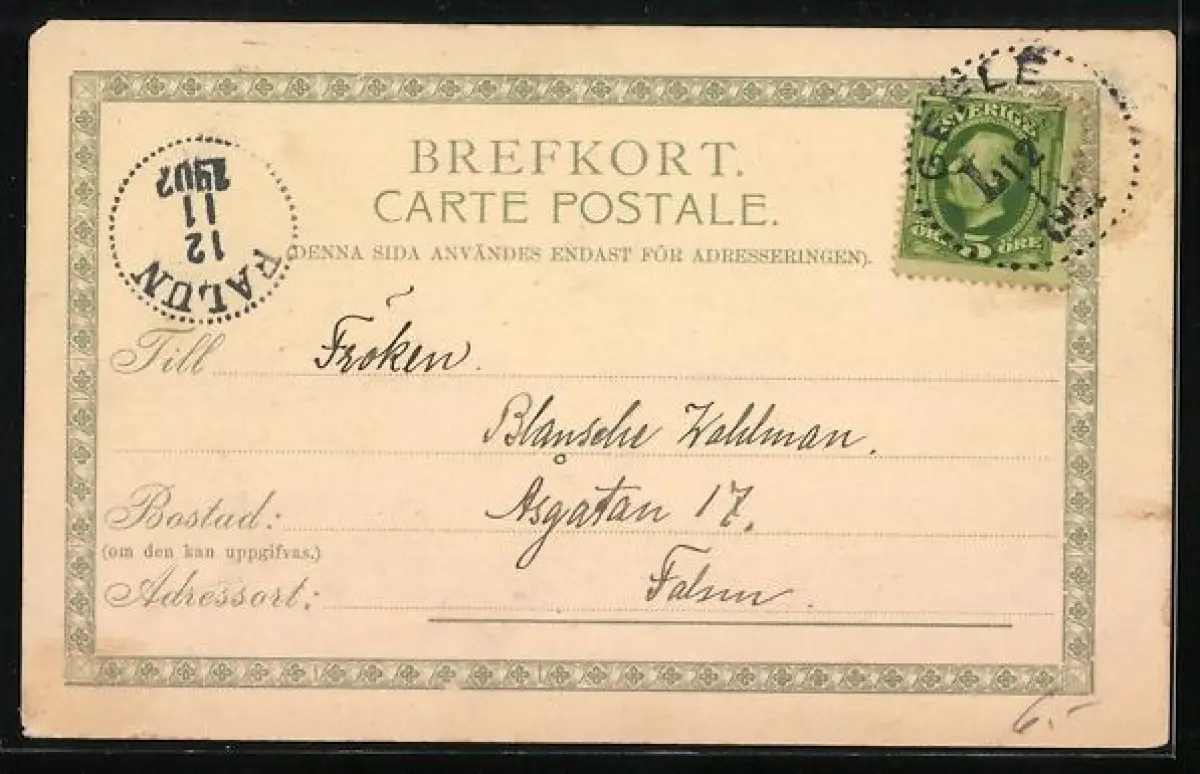 BREFKORT.
CARTE POSTALE.
(DENNA SIDA ANVÄNDES ENDAST FÖR ADRESSERINGEN).
GEFLE
L 12
SVERIGE
ÖRE 5 ÖRE
FALUN
12
11
1902
Till Fröken.
Blansche Wahlman.
Åsgatan 17.
Bostad:
(om den kan uppgifvas.)
Adressort: Falun.
6.-